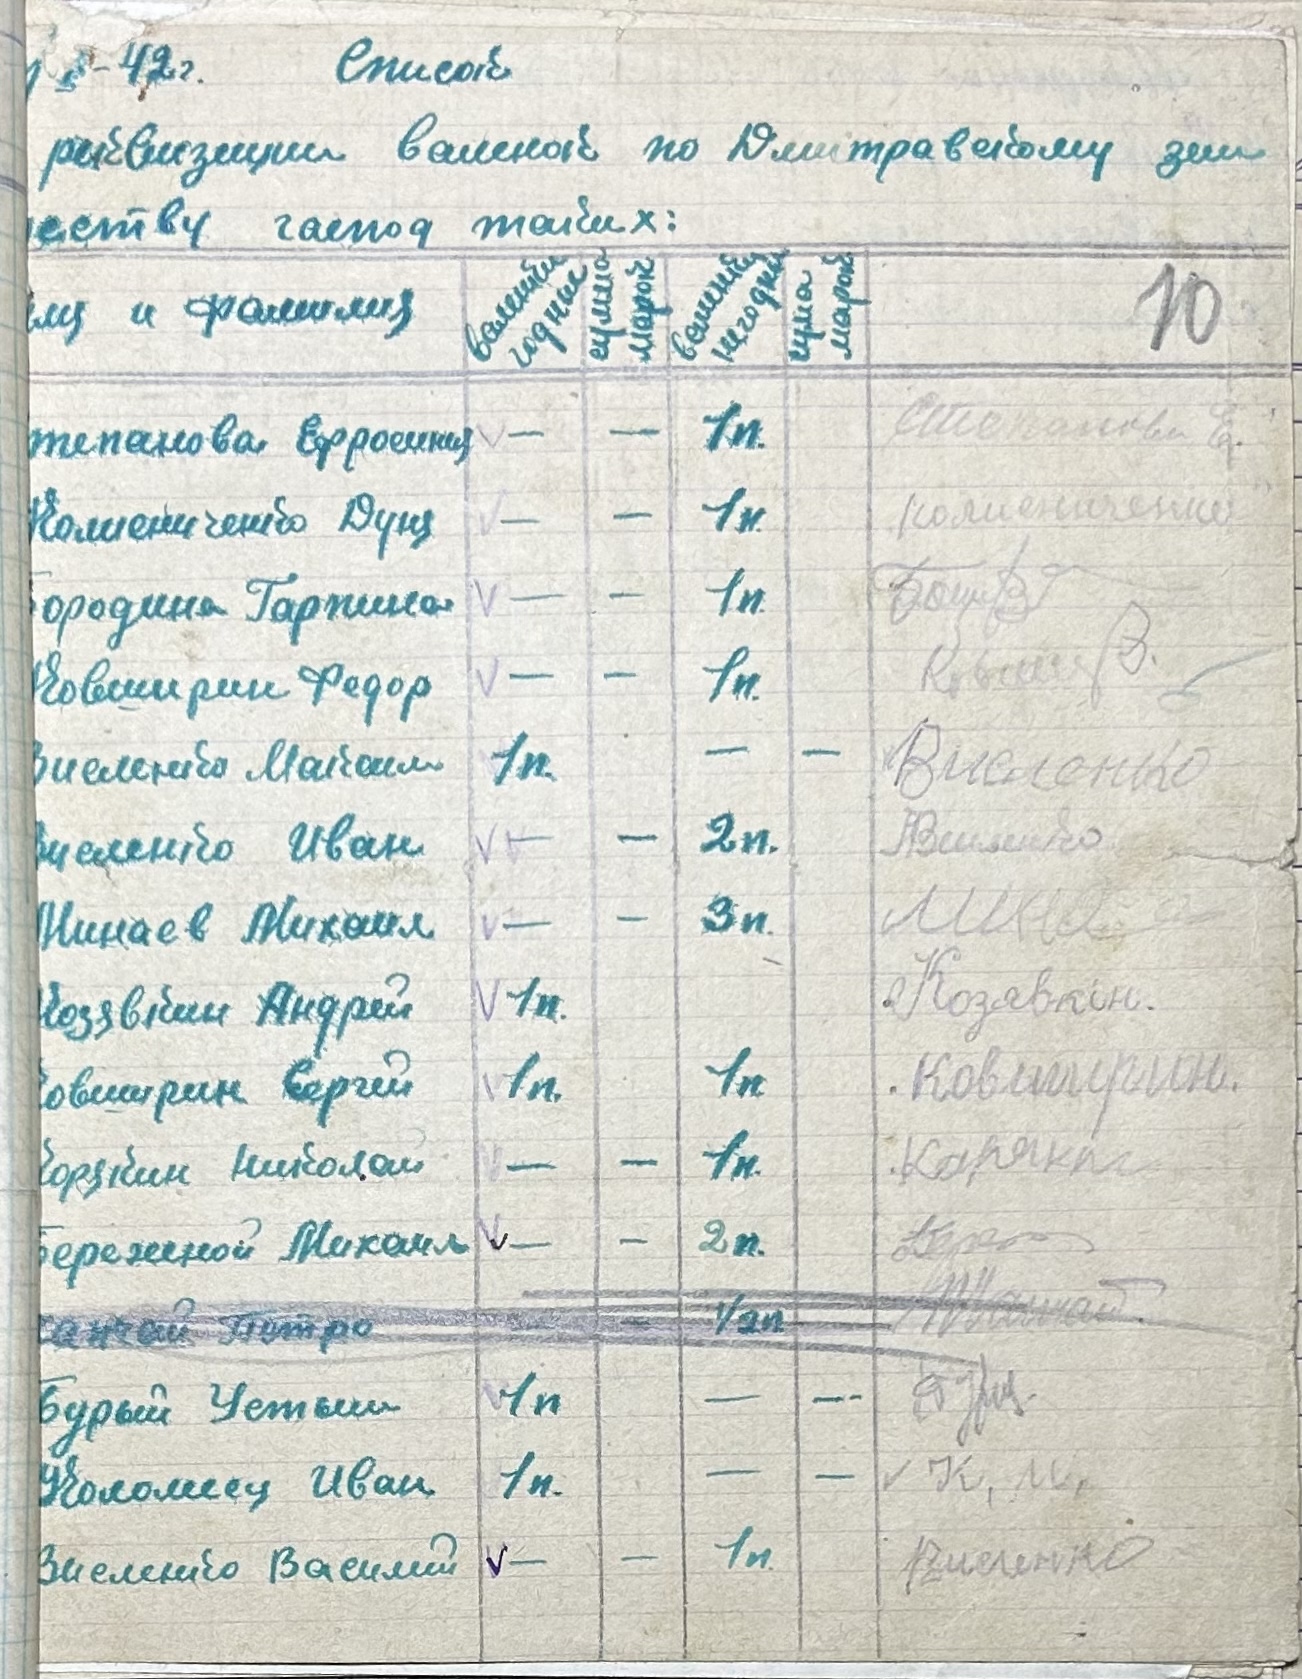 -42г. Список
риквизиции валенок по Дмитравскому зем
еству господ таких:
имя и фамилия валенки годние сумма марок валенки негодни сума марок 10
тепанова Ефросиния V — — 1п. Степанова Е.
Колисниченко Дуня V — — 1п. Колисниченко
Бородина Гарпина V — — 1п.
Ковширин Федор V — — 1п.
Висленко Максим 1п. — — Висленко
Висленко Иван VV — — 2п. Висленко
Минаев Михаил V — — 3п. Мина
Козявкин Андрей V 1п. Козявкин.
Ковширин Сергей V 1п. 1п. Ковширин.
Корякин Николай — — 1п. Карякин
Бережной Михаил V — — 2п.
Петро — — 1/2п
Бурый Устин V 1п — —
Коломиец Иван 1п. — — К, И,
Висленко Василий V — — 1п. Висленко